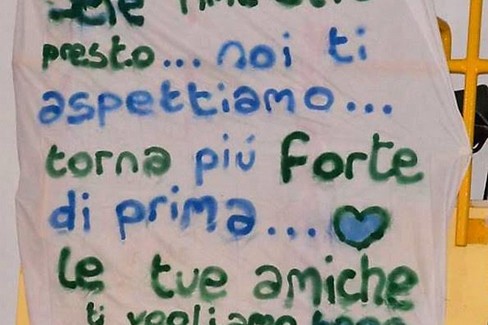 presto... noi ti
aspettiamo...
torna piú forte
di prima...
le tue amiche
ti vogliamo bene